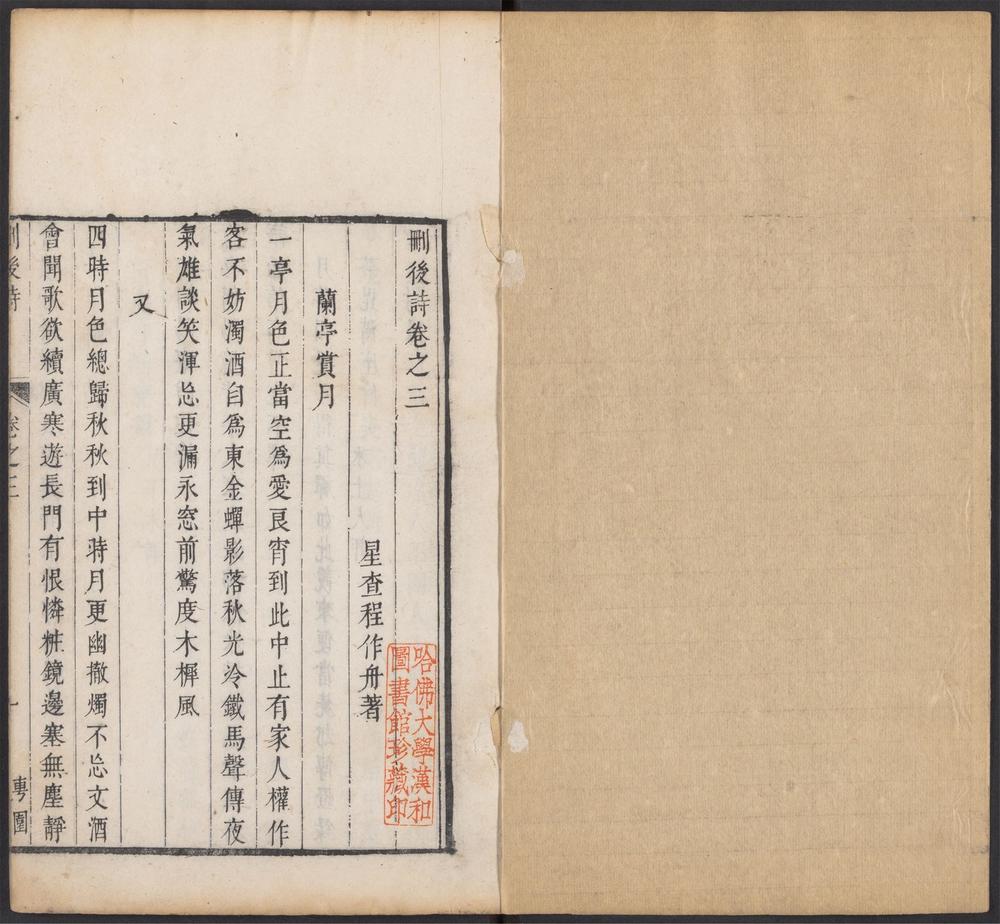 刪後詩卷之三
星查程作舟著
蘭亭賞月
一亭月色正當空為愛良宵到此中止有家人權作
客不妨濁酒自為東金蟬影落秋光冷鐵馬聲傳夜
氣雄談笑渾忘更漏永窓前驚度木樨風
又
四時月色總歸秋秋到中時月更幽撤燭不忘文酒
會聞歌欲續廣寒遊長門有恨憐粧鏡邊塞無塵靜
刪後詩
卷之三
一
粵園
哈佛大學漢和
圖書館珍藏印